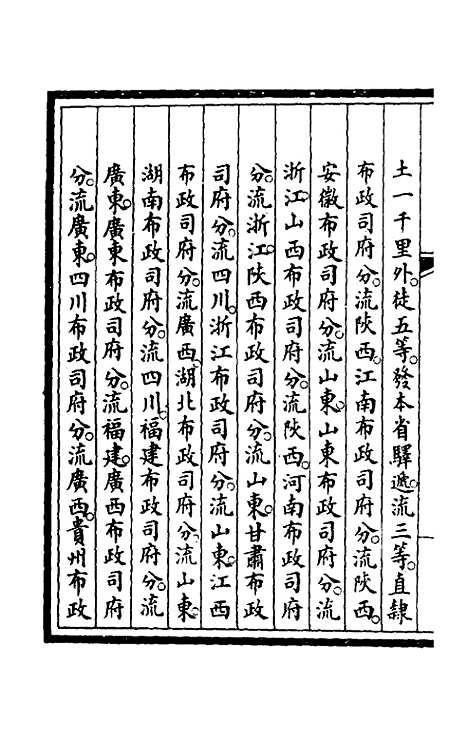 土一千里外。徒五等。發本省驛遞。流三等。直隸
布政司府分。流陝西。江南布政司府分。流陝西。
安徽布政司府分。流山東。山東布政司府分。流
浙江。山西布政司府分。流陝西。河南布政司府
分。流浙江。陝西布政司府分。流山東。甘肅布政
司府分。流四川。浙江布政司府分。流山東。江西
布政司府分。流廣西。湖北布政司府分。流山東。
湖南布政司府分。流四川。福建布政司府分。流
廣東。廣東布政司府分。流福建。廣西布政司府
分。流廣東。四川布政司府分。流廣西。貴州布政